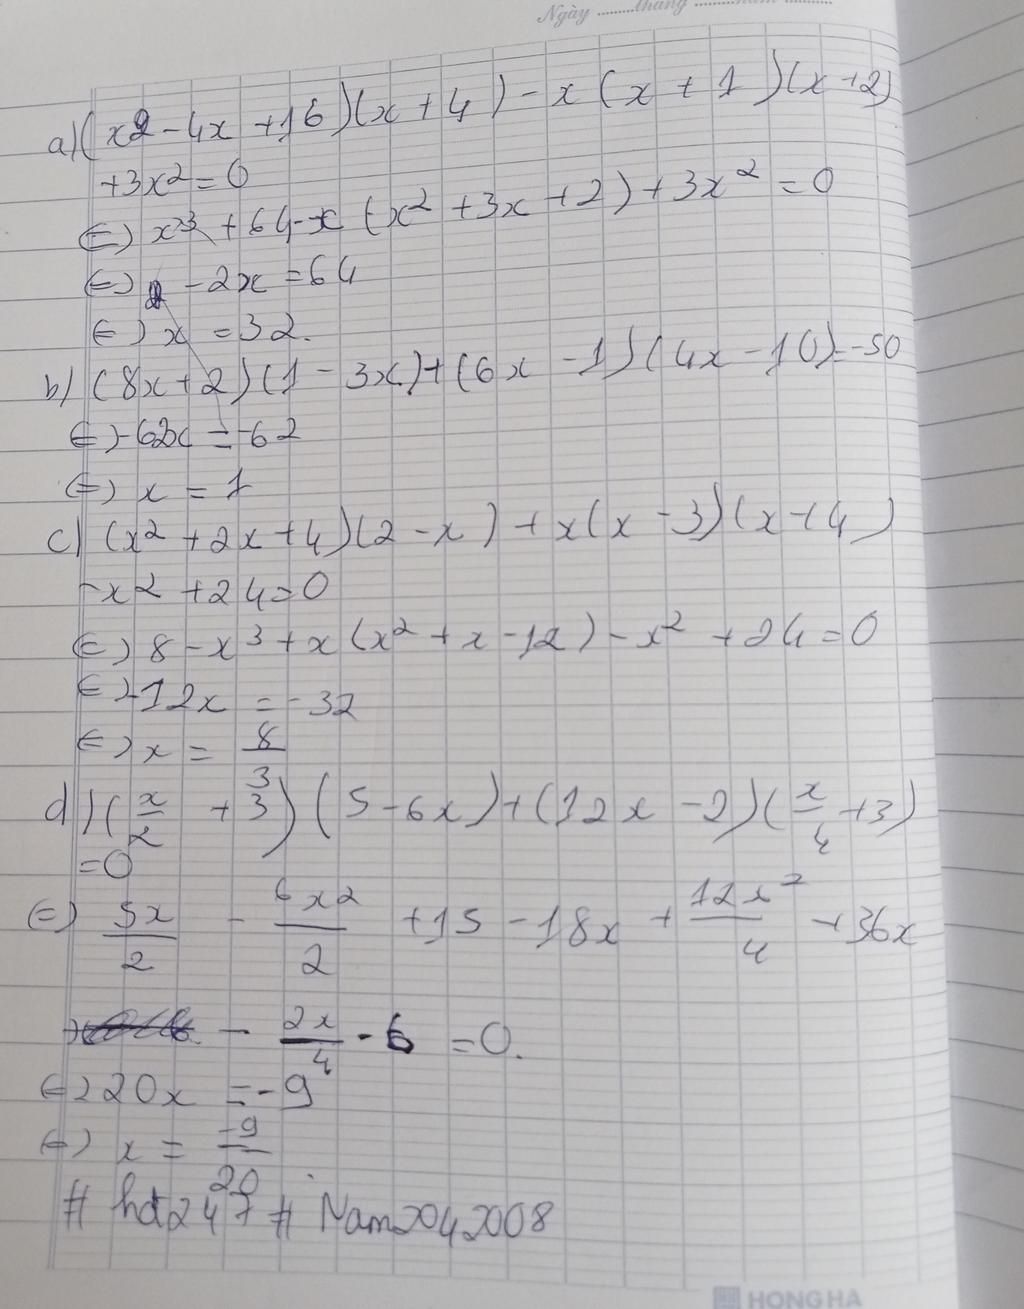 Ngày ........tháng ............ năm ............
a) (x2 - 4x + 16)(x + 4) - x(x + 1)(x + 2)
+3x² = 0
(=) x³ + 64 - x (x² + 3x + 2) + 3x² = 0
(=) -2x = 64
(=) x = 32.
b) (8x + 2)(1 - 3x) + (6x - 1)(4x - 10) = -50
(=) -62x = -62
(=) x = 1
c) (x² + 2x + 4)(2 - x) + x(x - 3)(x + 4)
-x2 + 24 = 0
(=) 8 - x³ + x(x² + x - 12) - x² + 24 = 0
(=) -12x = -32
(=) x = 8/3
d) (x/2 + 3)(5 - 6x) + (12x - 2)(x/4 + 3)
= 0
(=) 5x/2 - 6x2/2 + 15 - 18x + 12x²/4 + 36x
- 2x/4 - 6 = 0.
(=) 20x = -9
(=) x = -9/20
# hdt247 # Nam2042008
HONG HA